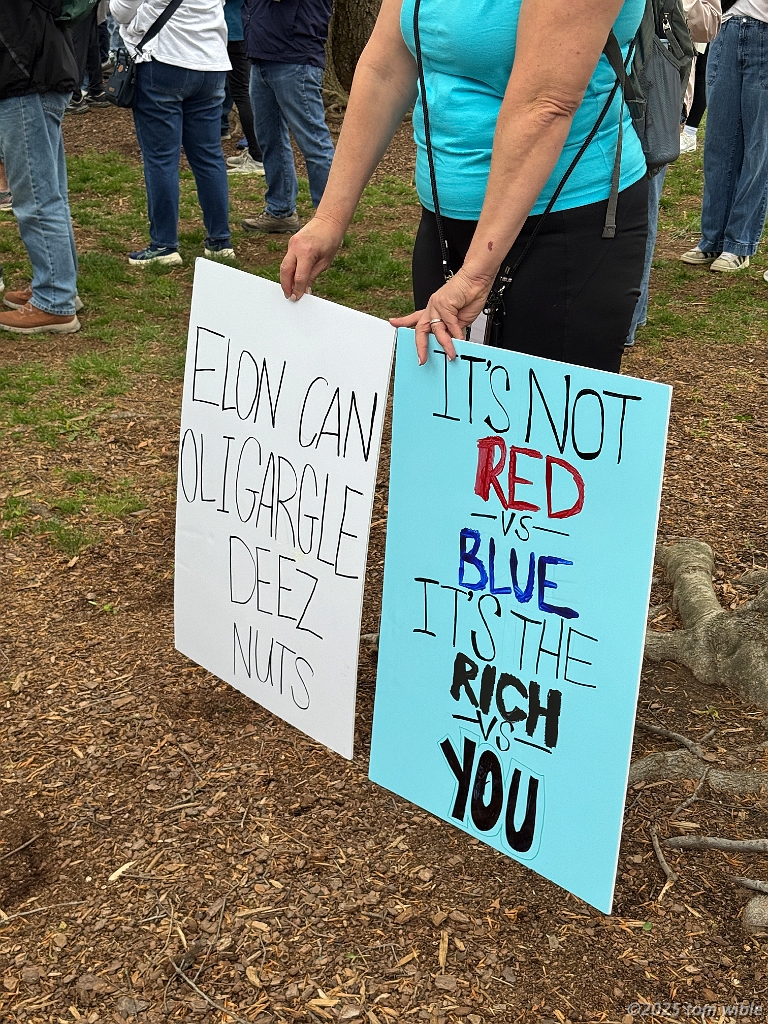 ELON CAN
OLIGARGLE
DEEZ
NUTS
IT'S NOT
RED
—VS—
BLUE
IT'S THE
RICH
—VS—
YOU
©2025 tom wible